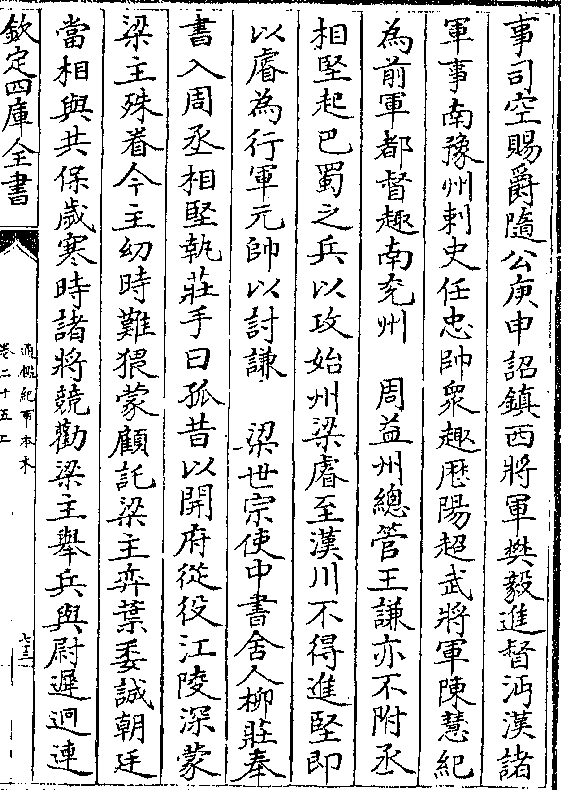 事司空賜爵隨公庚申詔鎮西將軍樊毅進督沔漢諸
軍事南豫州刺史任忠帥衆趣厯陽超武將軍陳慧紀
為前軍都督趣南兖州　周益州總管王謙亦不附丞
相堅起巴蜀之兵以攻始州梁睿至漢川不得進堅即
以睿為行軍元帥以討謙　梁世宗使中書舍人柳莊奉
書入周丞相堅執莊手曰孤昔以開府從役江陵深蒙
梁主殊眷今主幼時難猥蒙顧託梁主弈葉委誠朝廷
當相與共保歲寒時諸將競勸梁主舉兵與尉遲迥連
欽定四庫全書
通鑑紀事本末
卷二十五上